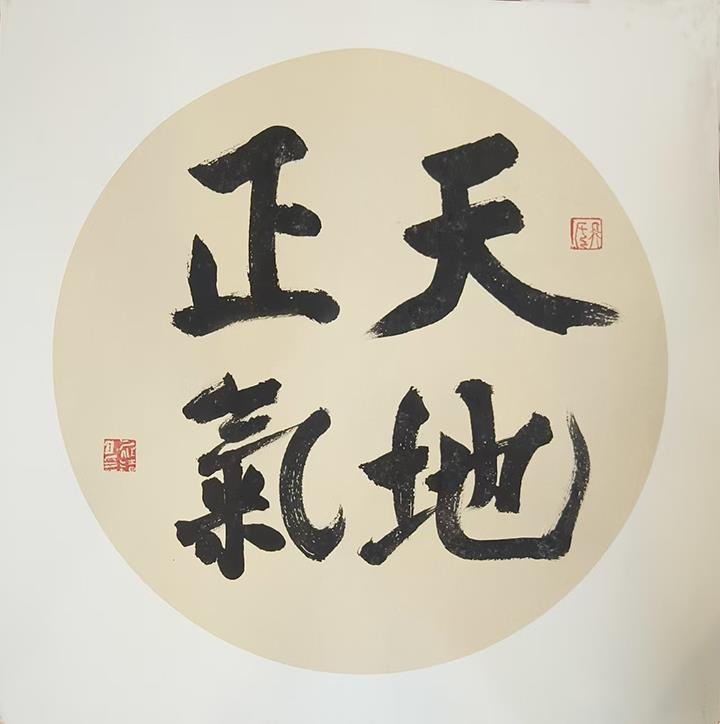 天地
正氣